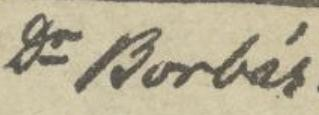 Dr Borbás.